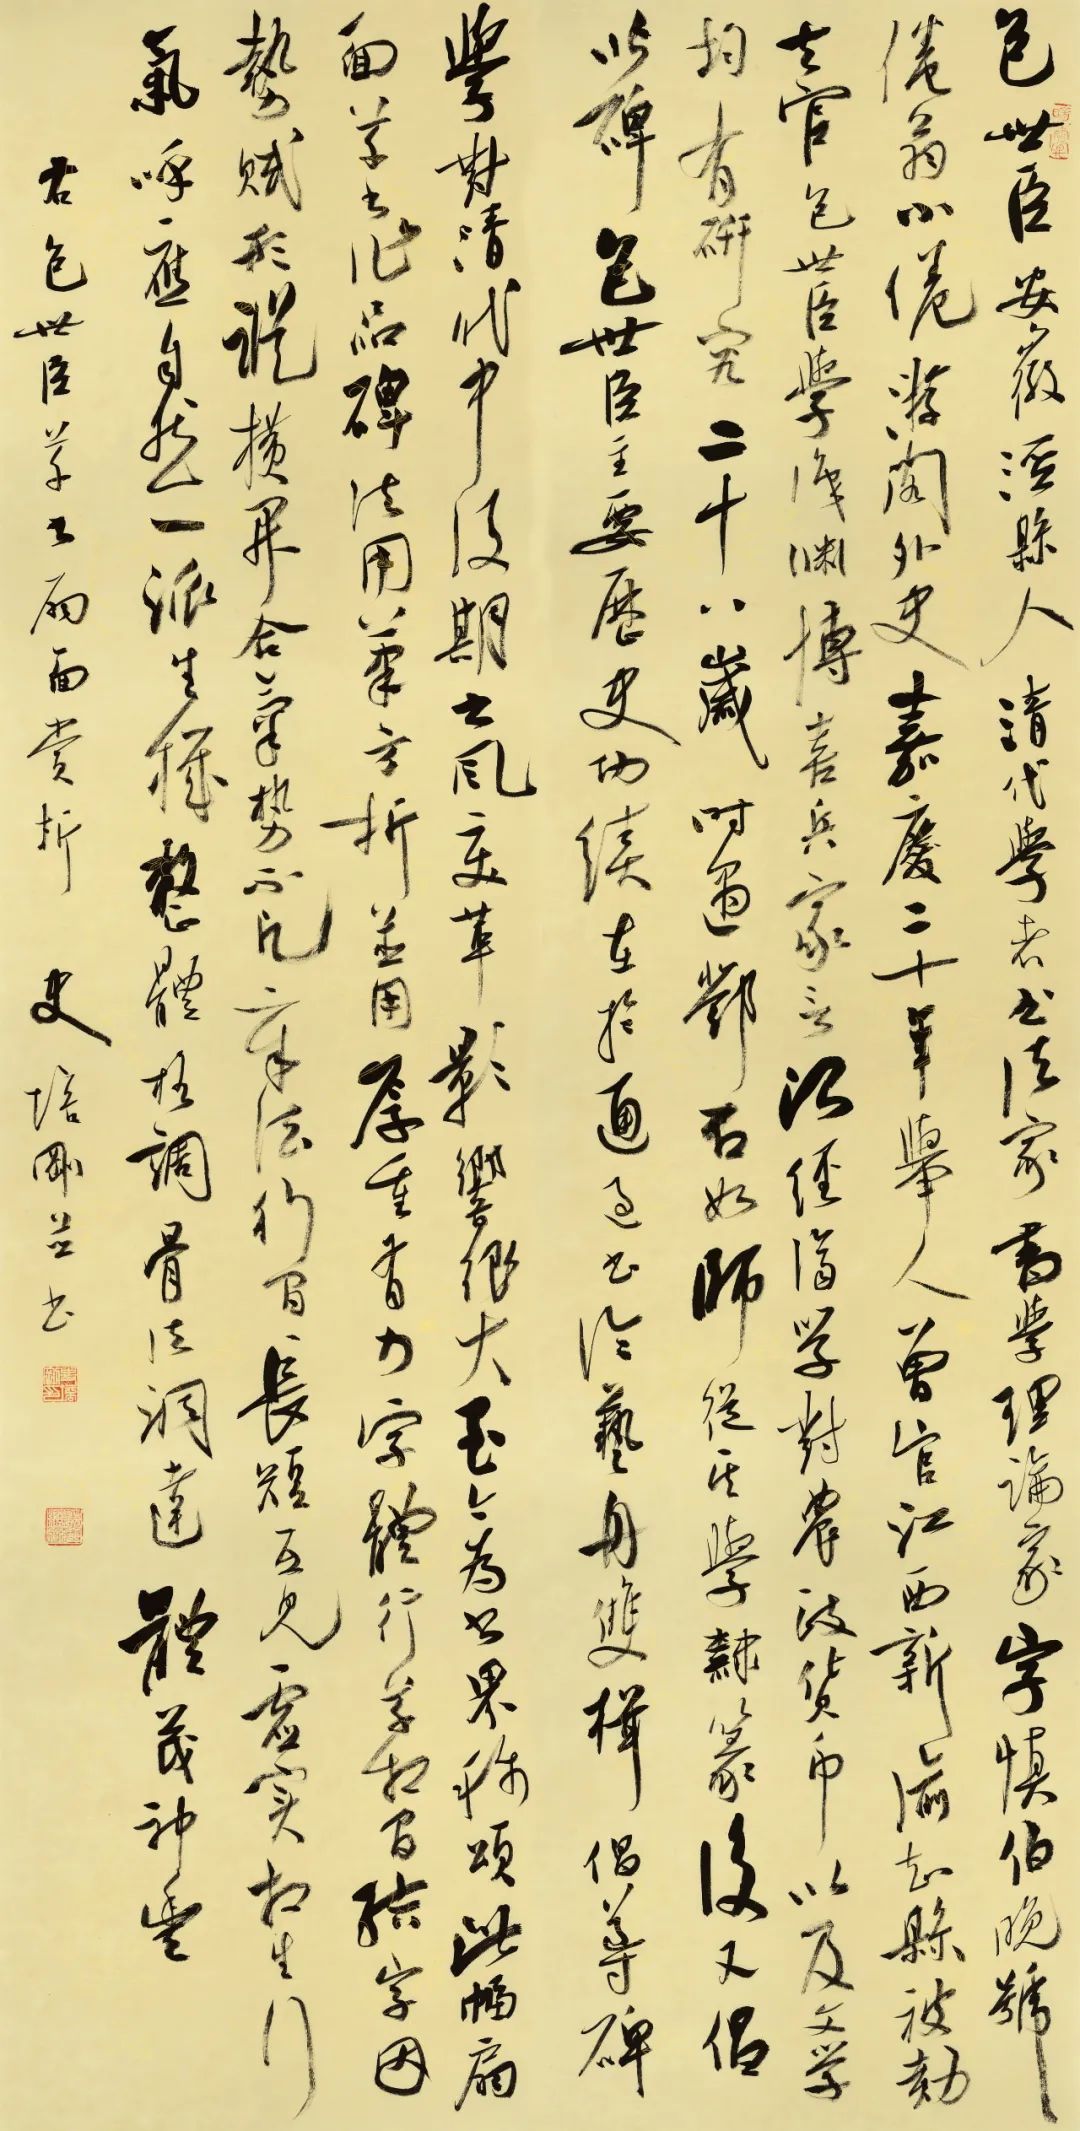 包世臣安徽涇縣人清代學者書法家書學理論家字慎伯晚號
倦翁小倦游閣外史嘉慶二十年舉人曾官江西新渝知縣被劾
去官包世臣學識淵博喜兵家言治經濟學對農政貨幣以及文學
均有研究二十八歲時遇鄧石如師從其學隸篆後又倡
以碑包世臣主要歷史功績在於通過書論藝舟雙楫倡導碑
學對清代中後期書風變革影響很大至今為書界稱頌此幅扇
面草書作品碑法用筆方折並用厚重有力字體行草相間結字因
勢賦形縱橫開合氣勢不凡章法行間長短互見虛實相生行
氣呼應自然一派生機整體格調骨法洞達體茂神豐
右包世臣草書扇面賞析 史培剛并書